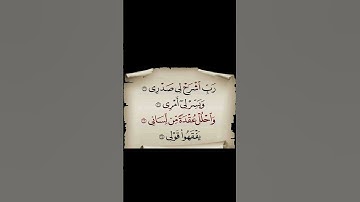 رَبِّ ٱشْرَحْ لِى صَدْرِى
وَيَسِّرْ لِىٓ أَمْرِى
وَٱحْلُلْ عُقْدَةً مِّن لِّسَانِى
يَفْقَهُوا۟ قَوْلِى